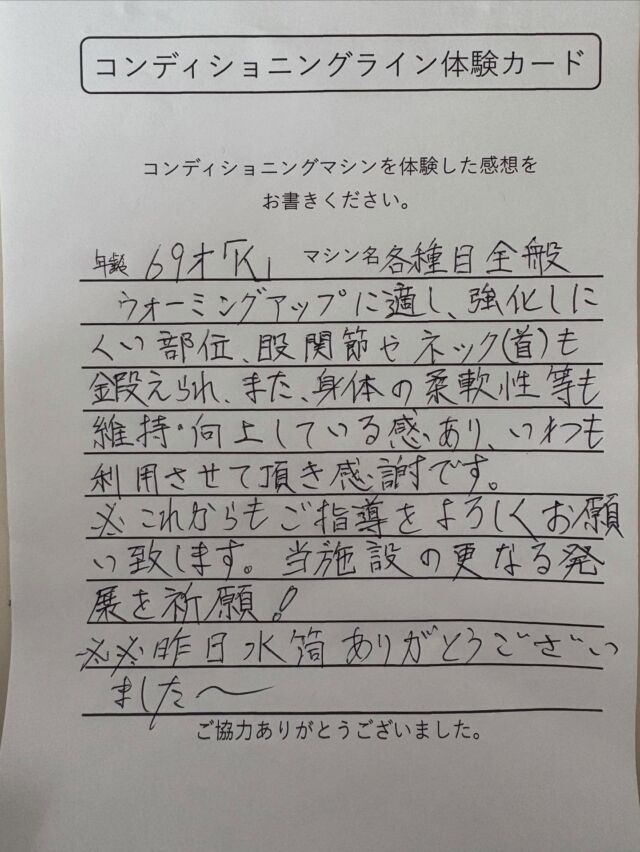 コンディショニングライン体験カード
コンディショニングマシンを体験した感想を
お書きください。
年齢 69才「K」 マシン名 各種目全般
ウォーミングアップに適し、強化しに
くい部位、股関節やネック(首)も
鍛えられ、また、身体の柔軟性等も
維持・向上している感あり、いつも
利用させて頂き感謝です。
※これからもご指導をよろしくお願
い致します。当施設の更なる発
展を祈願!
※※昨日水筒ありがとうござい
ました〜
ご協力ありがとうございました。